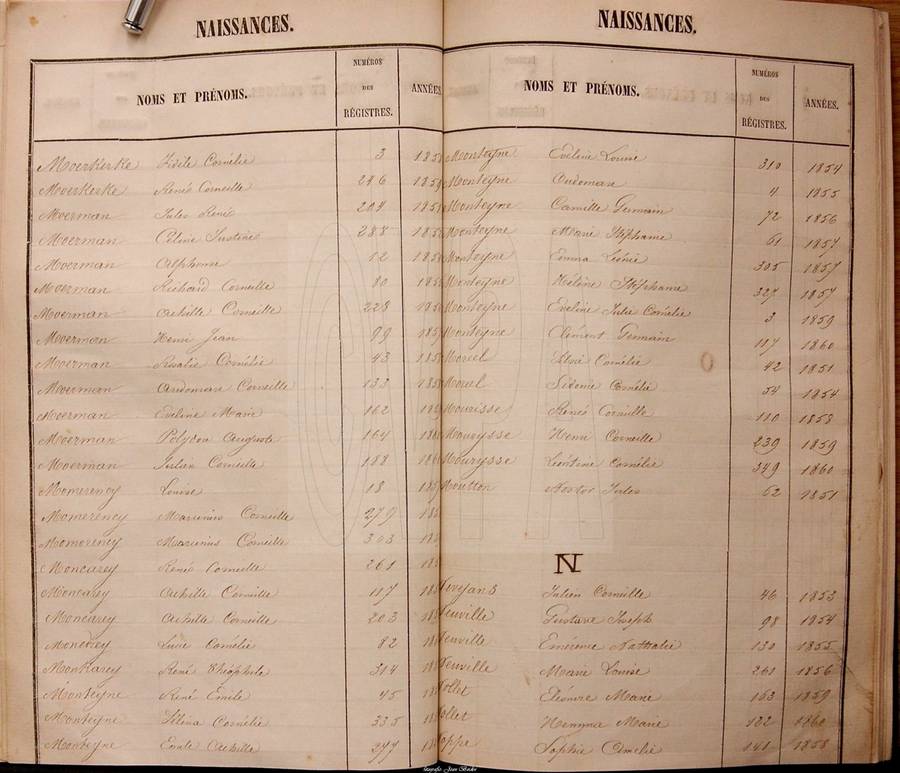 NAISSANCES.
NOMS ET PRÉNOMS. NUMÉROS DES RÉGISTRES. ANNÉES
Moerkerke Cornélie 3
Moerkerke René Corneille 246
Moerman Jules René 204
Moerman Céline Justine 288
Moerman Alphonse 12
Moerman Richard Corneille 80
Moerman Achille Corneille 228
Moerman Henri Jean 99
Moerman Rosalie Cornélie 43
Moerman Audomar Corneille 133
Moerman Eveline Marie 162
Moerman Polydor Auguste 164
Moerman Julien Corneille 188
Momerency Louise 18
Momerency Marinius Corneille 279
Momerency Marinius Corneille 303
Moncarey René Corneille 261
Moncarey Achille Corneille 117
Moncarey Achille Corneille 203
Moncarey Lucie Cornélie 82
Monkarey René Théophile 314
Monteyne René Emile 45
Monteyne Silvia Cornélie 335
Monteyne Emile Achille 247
NAISSANCES.
NOMS ET PRÉNOMS. NUMÉROS DES RÉGISTRES. ANNÉES.
Monteyne Eveline Louise 310 1854
Monteyne Oudomar 4 1855
Monteyne Camille Germain 72 1856
Monteyne Marie Stéphanie 61 1857
Monteyne Emma Léonie 305 1857
Monteyne Hélène Stéphanie 327 1857
Monteyne Eveline Julie Cornélie 3 1859
Monteyne Clément Germain 117 1860
Moreel Cornélie 42 1851
Moreel Sidonie Cornélie 54 1854
Mourisse René Corneille 110 1858
Mourysse Henri Corneille 239 1859
Mourysse Léontine Cornélie 349 1860
Moutton Nestor Jules 62 1851
N
Julien Corneille 46 1853
Neuville Gustave Joseph 98 1854
Neuville Emérence Nathalie 130 1855
Neuville Marie Louise 261 1856
Nollet Eléonore Marie 163 1859
Nollet Hemma Marie 122 1860
Noppe Sophie Amélie 141 1858